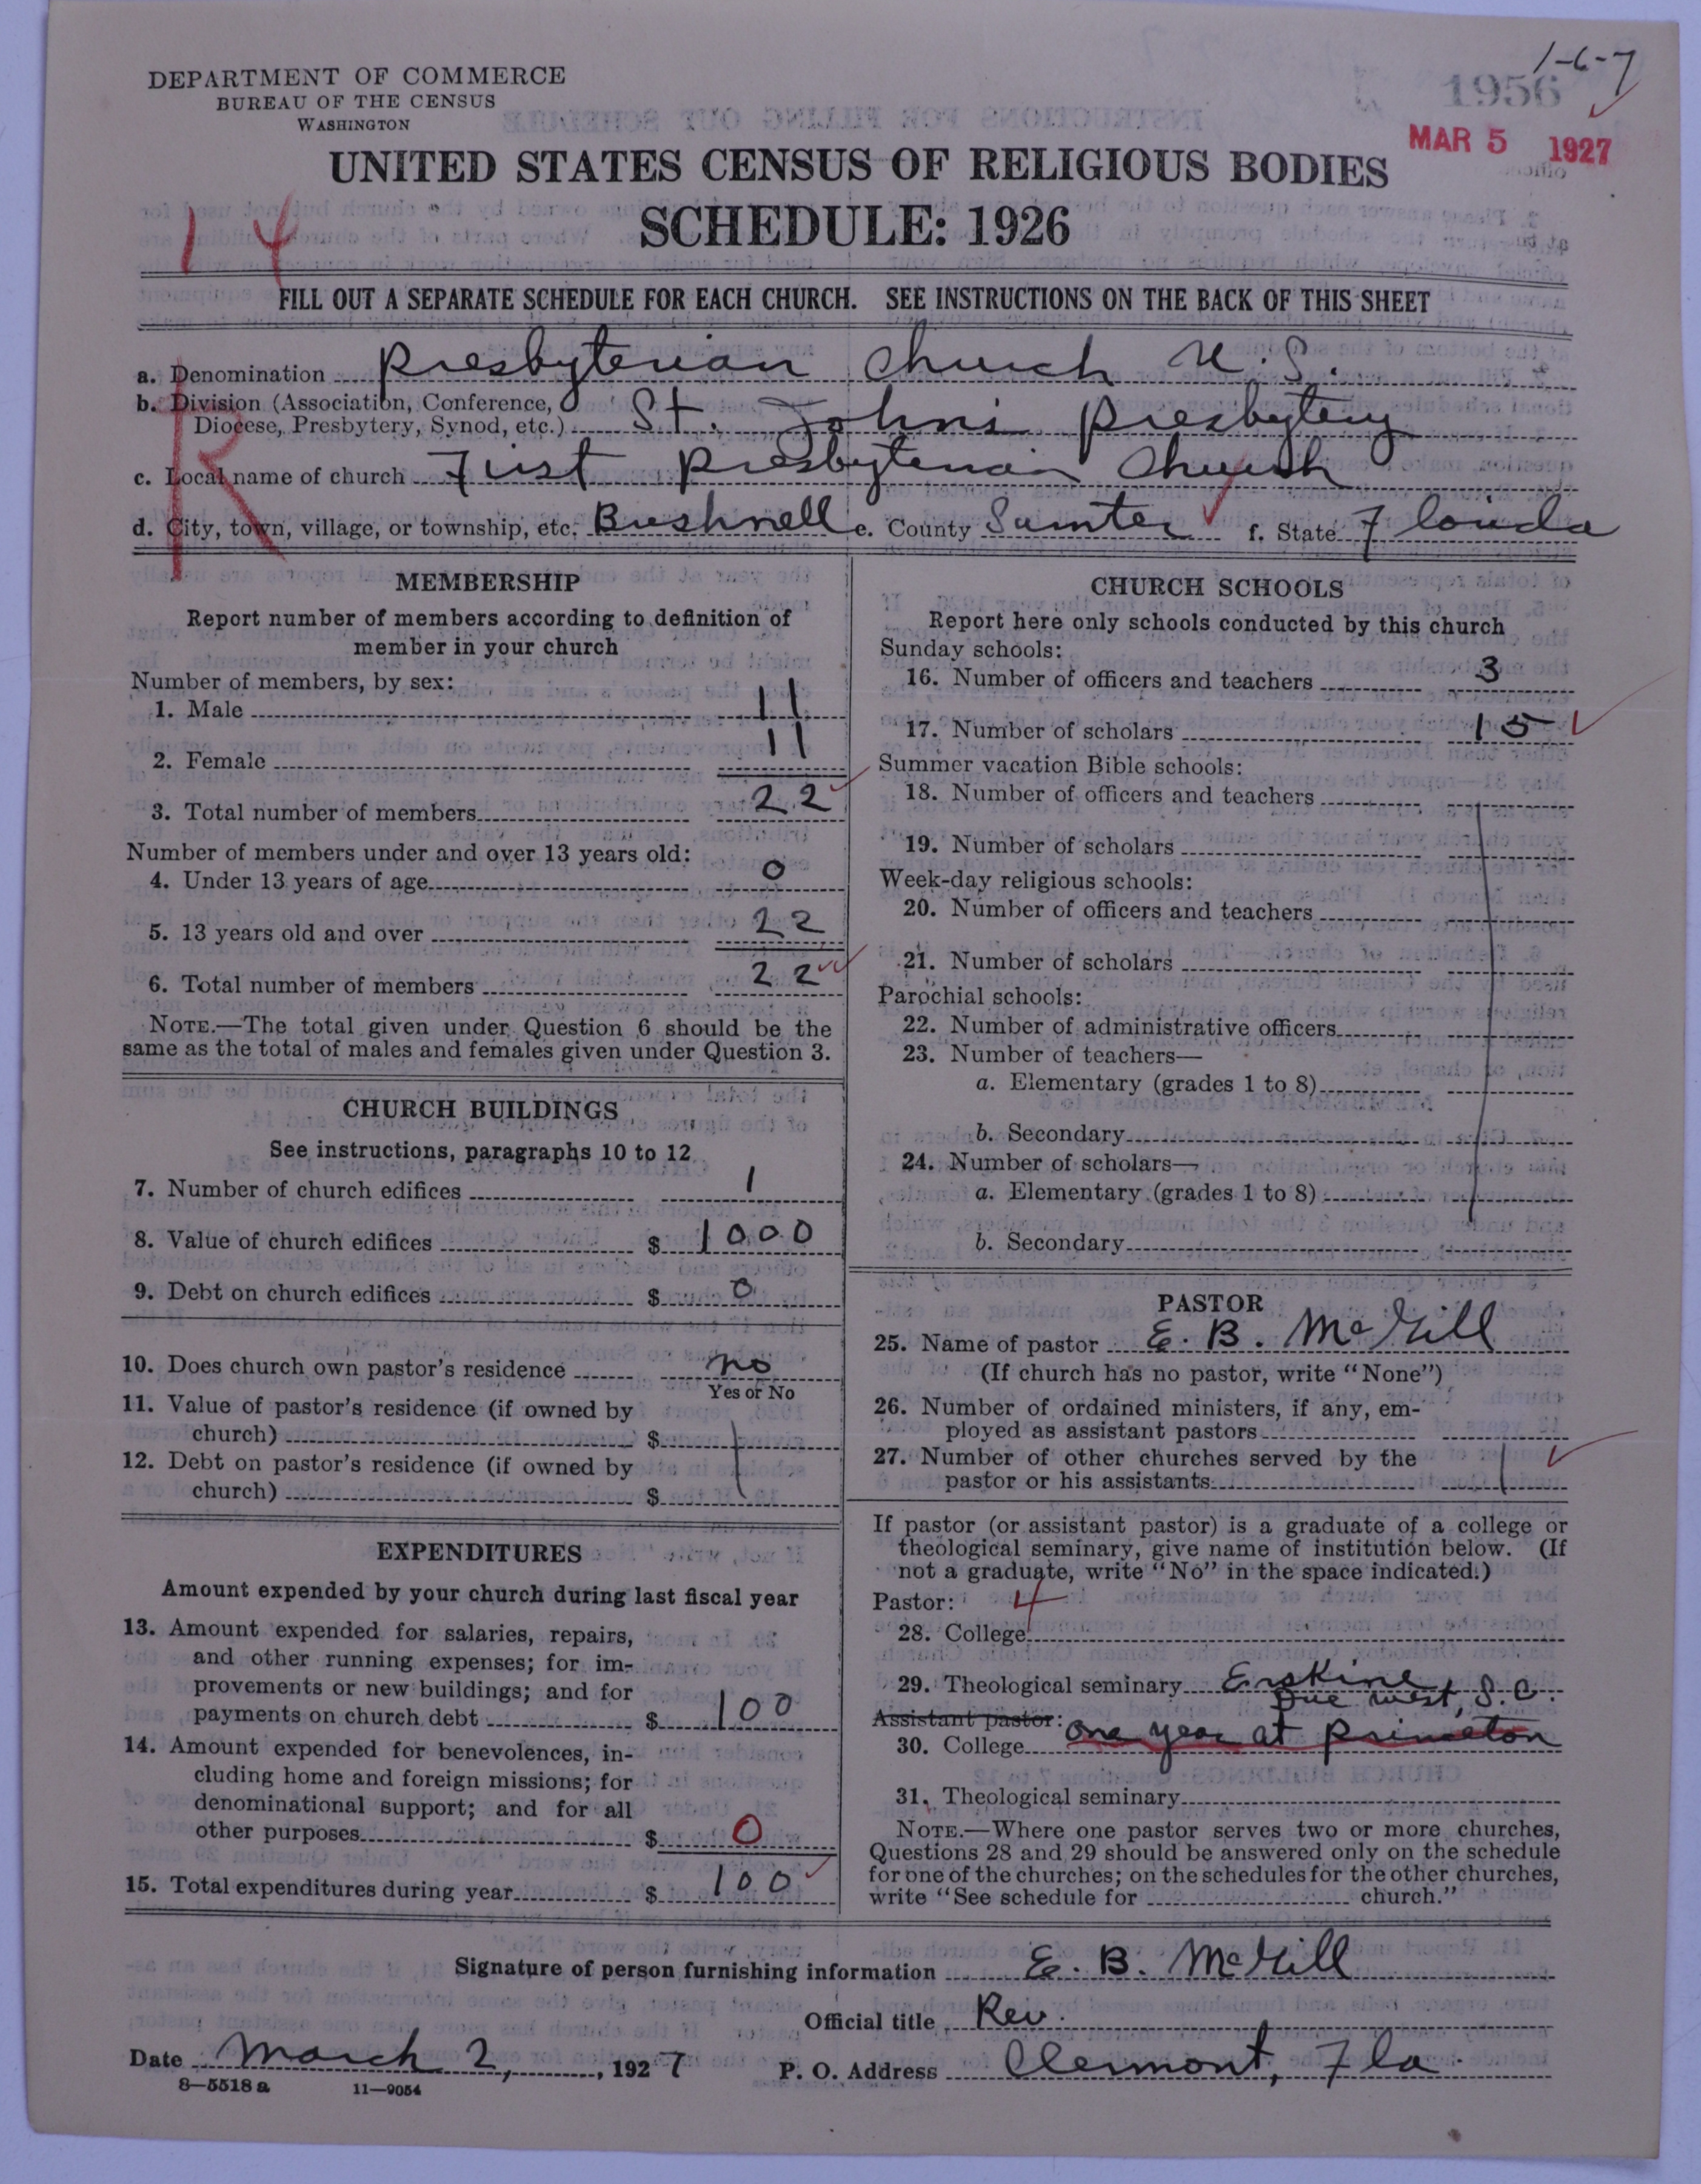 1-6-7
1956
DEPARTMENT OF COMMERCE
BUREAU OF THE CENSUS
WASHINGTON
MAR 5 1927
UNITED STATES CENSUS OF RELIGIOUS BODIES
SCHEDULE: 1926
1 4
FILL OUT A SEPARATE SCHEDULE FOR EACH CHURCH. SEE INSTRUCTIONS ON THE BACK OF THIS SHEET
R
a. Denomination Presbyterian Church U. S.
b. Division (Association, Conference,
Diocese, Presbytery, Synod, etc.) St. Johns Presbytery
c. Local name of church First Presbyterian Church
d. City, town, village, or township, etc. Bushnell e. County Sumter f. State Florida
MEMBERSHIP
Report number of members according to definition of
member in your church
Number of members, by sex:
1. Male 11
2. Female 11
3. Total number of members 22
Number of members under and over 13 years old:
4. Under 13 years of age 0
5. 13 years old and over 22
6. Total number of members 22
NOTE.—The total given under Question 6 should be the
same as the total of males and females given under Question 3.
CHURCH BUILDINGS
See instructions, paragraphs 10 to 12
7. Number of church edifices 1
8. Value of church edifices $ 1000
9. Debt on church edifices $ 0
10. Does church own pastor's residence no
Yes or No
11. Value of pastor's residence (if owned by
church) $
12. Debt on pastor's residence (if owned by
church) $
EXPENDITURES
Amount expended by your church during last fiscal year
13. Amount expended for salaries, repairs,
and other running expenses; for im-
provements or new buildings; and for
payments on church debt $ 100
14. Amount expended for benevolences, in-
cluding home and foreign missions; for
denominational support; and for all
other purposes $ 0
15. Total expenditures during year $ 100
CHURCH SCHOOLS
Report here only schools conducted by this church
Sunday schools:
16. Number of officers and teachers 3
17. Number of scholars 15
Summer vacation Bible schools:
18. Number of officers and teachers
19. Number of scholars
Week-day religious schools:
20. Number of officers and teachers
21. Number of scholars
Parochial schools:
22. Number of administrative officers
23. Number of teachers—
a. Elementary (grades 1 to 8)
b. Secondary
24. Number of scholars—
a. Elementary (grades 1 to 8)
b. Secondary
PASTOR
25. Name of pastor E. B. McGill
(If church has no pastor, write "None")
26. Number of ordained ministers, if any, em-
ployed as assistant pastors
27. Number of other churches served by the
pastor or his assistants 1
If pastor (or assistant pastor) is a graduate of a college or
theological seminary, give name of institution below. (If
not a graduate, write "No" in the space indicated.)
Pastor: 4
28. College
29. Theological seminary Erskine
Due West, S. C.
Assistant pastor:
30. College one year at Princeton
31. Theological seminary
NOTE.—Where one pastor serves two or more churches,
Questions 28 and 29 should be answered only on the schedule
for one of the churches; on the schedules for the other churches,
write "See schedule for church."
Signature of person furnishing information E. B. McGill
Official title Rev.
Date March 2, 1927 P. O. Address Clermont, Fla.
8-5518 a 11-9054